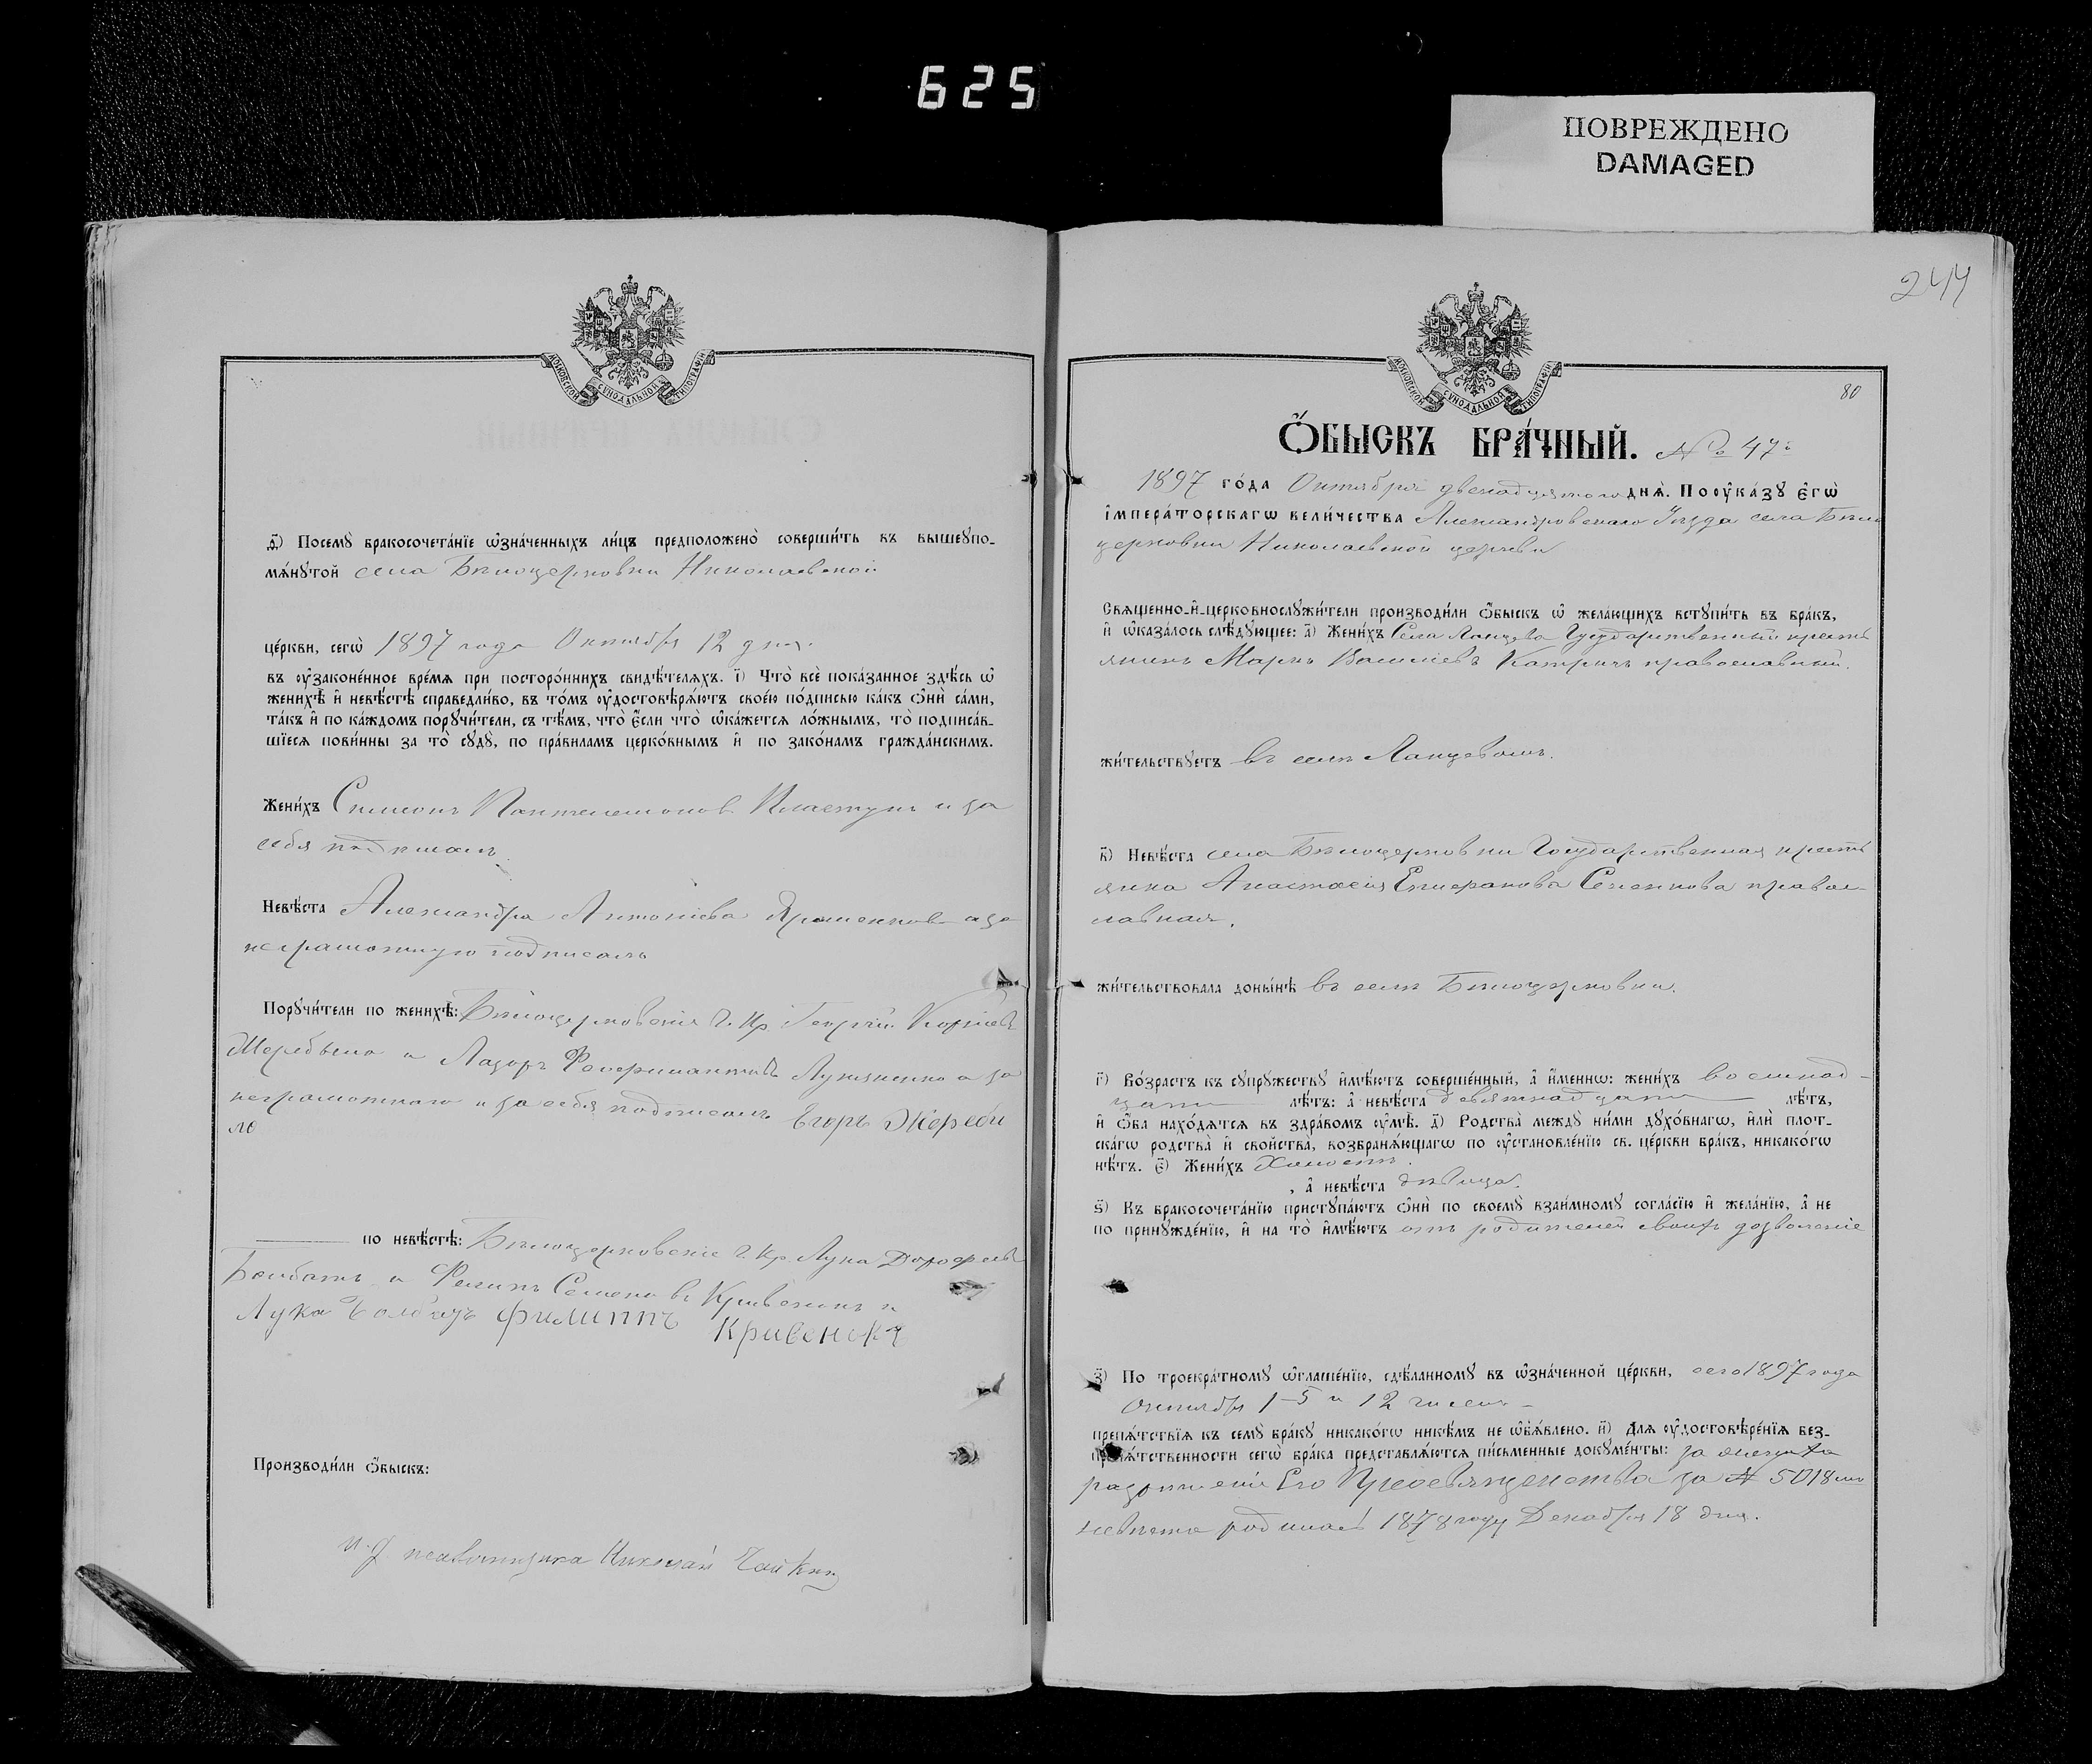 625
ПОВРЕЖДЕНО
DAMAGED
МОСКОВСКОЙ СѴНОДАЛЬНОЙ ТИПОГРАФІИ
ѳ҃) Посемꙋ̀ бракосочета́нїе ѡ҆зна́ченныхъ ли́цъ предположено̀ соверши́ть въ вышеꙋпо-
мѧ́нꙋтой села Бѣлоцерковки Николаевской
це́ркви, сегѡ̀ 1897 года Октября 12 дня.
въ ᲂу҆зако́ненное вре́мѧ при посторо́ннихъ свидѣ́телѧхъ. і҃) Что̀ всѐ пока́занное здѣ́сь ѡ҆
женихѣ̀ и҆ невѣ́стѣ справедли́во, въ то́мъ ᲂу҆достовѣрѧ́ютъ свое́ю по́дписью ка́къ ѻ҆нѝ са́ми,
та́къ и҆ по ка́ждомъ порꙋчи́тели, съ тѣ́мъ, что̀ є҆́сли что̀ ѡ҆ка́жетсѧ ло́жнымъ, то̀ подписа́в-
шїесѧ пови́нны за то̀ сꙋдꙋ̀, по пра́виламъ церко́внымъ и҆ по зако́намъ гражда́нскимъ.
Жени́хъ Симеонъ Пантелеимонов. Пластунъ и за
себя подписалъ
Невѣ́ста Александра Антоніева а за
неграмотную подписалъ
Порꙋчи́тели по женихѣ̀: Бѣлоцерковскіе г. кр. Георгій Корніевъ
Жеребыло и Лазорь Лукяненко а за
неграмотнаго и за себя подписалъ Егоръ Жереби
ло
по невѣ́стѣ: Бѣлоцерковскіе г. кр. Лука Дорофеевъ
и Филипъ Семеновъ Кривенокъ
Лука Филиппъ Кривенокъ
Производи́ли ѻ҆́быскъ:
и. д. псаломщика Николай Чайкин
244
МОСКОВСКОЙ СѴНОДАЛЬНОЙ ТИПОГРАФІИ
80
Ѻ҆́БЫСКЪ БРА́ЧНЫЙ. № 47й
1897 го́да Октября двенадцятого днѧ̀. По ᲂу҆ка́зꙋ є҆гѡ̀
і҆мпера́торскагѡ вели́чества Александровскаго Уѣзда села Бѣло
церковки Николаевской церкви
Свѧщенно-и҆-церковнослꙋжи́тели производи́ли ѻ҆́быскъ ѡ҆ жела́ющихъ встꙋпи́ть въ бра́къ,
и҆ ѡ҆каза́лось слѣ́дꙋющее: а҃) Жени́хъ Села Ланцева Государственный кресть
янинъ Маркъ Василіевъ Катричъ православный.
жи́тельствꙋетъ въ селѣ Ланцевомъ.
в҃) Невѣ́ста села Бѣлоцерковки Государственная кресть
янка Анастасія Семенкова правос-
лавная.
жи́тельствовала доны́нѣ въ селѣ Бѣлоцерковки.
г҃) Во́зрастъ къ сꙋпрꙋ́жествꙋ и҆мѣ́ютъ соверше́нный, а҆ и҆́меннѡ: жени́хъ восемнад-
цати лѣ́тъ: а҆ невѣ́ста девятнадцати лѣ́тъ,
и҆ ѻ҆́ба нахо́дѧтсѧ въ здра́вомъ ᲂу҆мѣ̀. д҃) Родства̀ междꙋ ни́ми дꙋхо́внагѡ, и҆лѝ плот-
ска́гѡ родства̀ и҆ свойства̀, возбранѧ́ющагѡ по ᲂу҆становле́нїю св. це́ркви бра́къ, никако́гѡ
нѣ́тъ. є҃) Жени́хъ Холостъ.
, а҆ невѣ́ста дѣвица.
ѕ҃) Къ бракосочета́нїю пристꙋпа́ютъ ѻ҆нѝ по своемꙋ̀ взаи́мномꙋ согла́сїю и҆ жела́нїю, а҆ не
по принꙋжде́нїю, и҆ на то̀ и҆мѣ́ютъ отъ родителей своихъ дозволеніе
з҃) По троекра́тномꙋ ѡ҆глаше́нїю, сдѣ́ланномꙋ въ ѡ҆зна́ченной це́ркви, сего 1897 года
Октября 1-5 и 12 числа -
препѧ́тствїѧ къ семꙋ̀ бра́кꙋ никако́гѡ никѣ́мъ не ѡ҆б̾ѧ́влено. и҃) Длѧ ᲂу҆достовѣре́нїѧ без-
препѧ́тственности сегѡ̀ бра́ка представлѧ́ютсѧ пи́сьменные докꙋме́нты: за жениха
разрешеніе Его Преосвященства за № 5018
невѣста родилась 1878 году Декабря 18 дня.